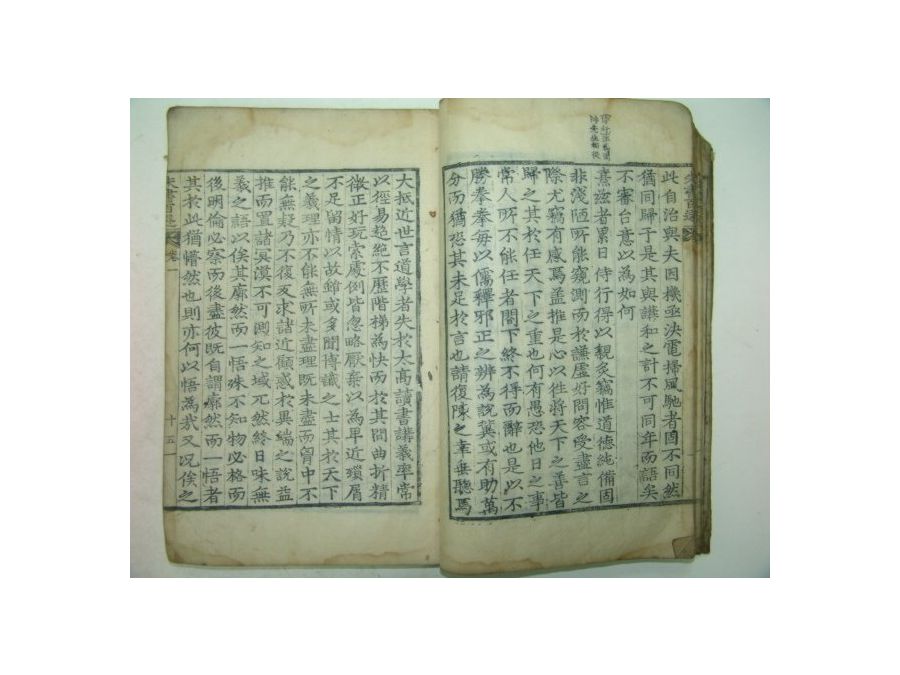 此自治與夫因機亟決電掃風馳者固不同然
猶同歸于是其與講和之計不可同年而語矣
不審台意以爲如何
熹茲者累日侍行得以親炙竊惟道德純備固
非淺陋所能窺測而於謙虛好問容受盡言之
際尤竊有感焉盖推是心以徃將天下之善皆
歸之其於任天下之重也何有愚恐他日之事
常人所不能任者閤下終不得而辭也是以不
勝拳拳每以儒釋邪正之辨爲說冀或有助萬
分而猶恐其未足於言也請復陳之幸垂聽焉
大抵近世言道學者失於太高讀書講義率常
以徑易超絶不歷階梯爲快而於其間曲折精
微正好玩索處例皆忽略厭棄以爲卑近瑣屑
不足留情以故雖或多聞博識之士其於天下
之義理亦不能無所未盡理既未盡而胷中不
能無疑乃不復反求諸近顧惑於異端之說益
推而置諸冥漠不可測知之域兀然終日味無
義之語以俟其廓然而一悟殊不知物必格而
後明倫必察而後盡彼既自謂廓然而一悟者
其於此猶懵然也則亦何以悟爲哉又況俟之
朱書百選 卷一
十五